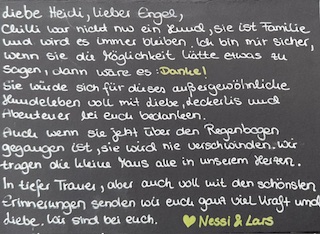 Liebe Heidi, lieber Engel,
Chilli war nicht nur ein Hund, sie ist Familie
und wird es immer bleiben. Ich bin mir sicher,
wenn sie die Möglichkeit hätte etwas zu
sagen, dann wäre es: Danke!
Sie würde sich für dieses außergewöhnliche
Hundeleben voll mit Liebe, Leckerlis und
Abenteuer bei euch bedanken.
Auch wenn sie jetzt über den Regenbogen
gegangen ist, sie wird nie verschwinden. Wir
tragen die kleine Maus alle in unserem Herzen.
In tiefer Trauer, aber auch voll mit den schönsten
Erinnerungen senden wir euch ganz viel Kraft und
Liebe. Wir sind bei euch. ♥ Nessi & Lars